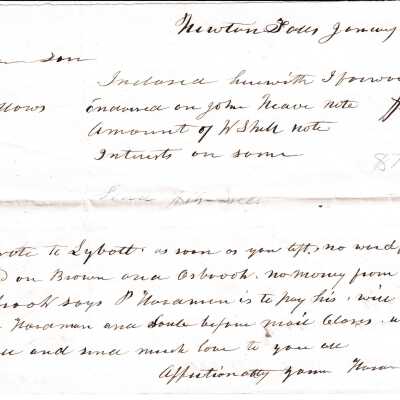 Newton Falls January
Son
Inclosed herewith I forwar
llows
Endorsed on John Neave note
Amount of W Shill note
Interest on same
87
wrote to Lybott as soon as you left, no word,
d on Brown and Osbrook. no money from
brook says P Hardman is to pay his. will
Hardman and before mail Closes.
and send much love to you all
Affectionatly yours